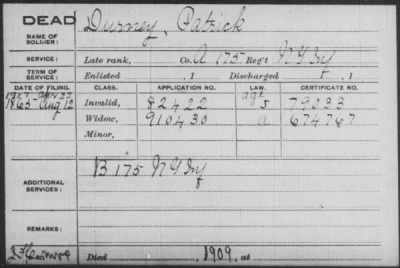 DEAD
NAME OF SOLDIER: Durney, Patrick
SERVICE: Late rank, Co. A 175 Reg't N Y Inf
TERM OF SERVICE: Enlisted , 1 Discharged , 1
DATE OF FILING. CLASS. APPLICATION NO. LAW. CERTIFICATE NO.
1865 Aug 12 Invalid, 82422 79033
Widow, 910430 a 674767
Minor,
ADDITIONAL SERVICES: B 175 N Y Inf
REMARKS:
Died , 1909, at